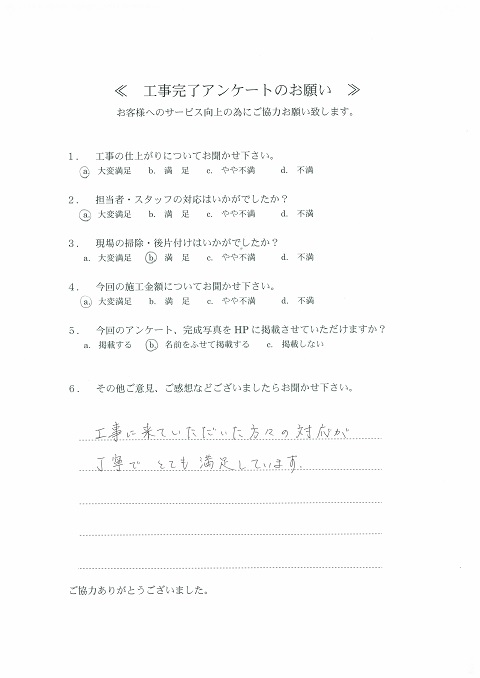 ≪ 工事完了アンケートのお願い ≫
お客様へのサービス向上の為にご協力お願い致します。
1. 工事の仕上がりについてお聞かせ下さい。
a. 大変満足 b. 満 足 c. やや不満 d. 不満
2. 担当者・スタッフの対応はいかがでしたか？
a. 大変満足 b. 満 足 c. やや不満 d. 不満
3. 現場の掃除・後片付けはいかがでしたか？
a. 大変満足 b. 満 足 c. やや不満 d. 不満
4. 今回の施工金額についてお聞かせ下さい。
a. 大変満足 b. 満 足 c. やや不満 d. 不満
5. 今回のアンケート、完成写真をHPに掲載させていただけますか？
a. 掲載する b. 名前をふせて掲載する c. 掲載しない
6. その他ご意見、ご感想などございましたらお聞かせ下さい。
工事に来ていただいた方々の対応が
丁寧で とても満足しています.
ご協力ありがとうございました。